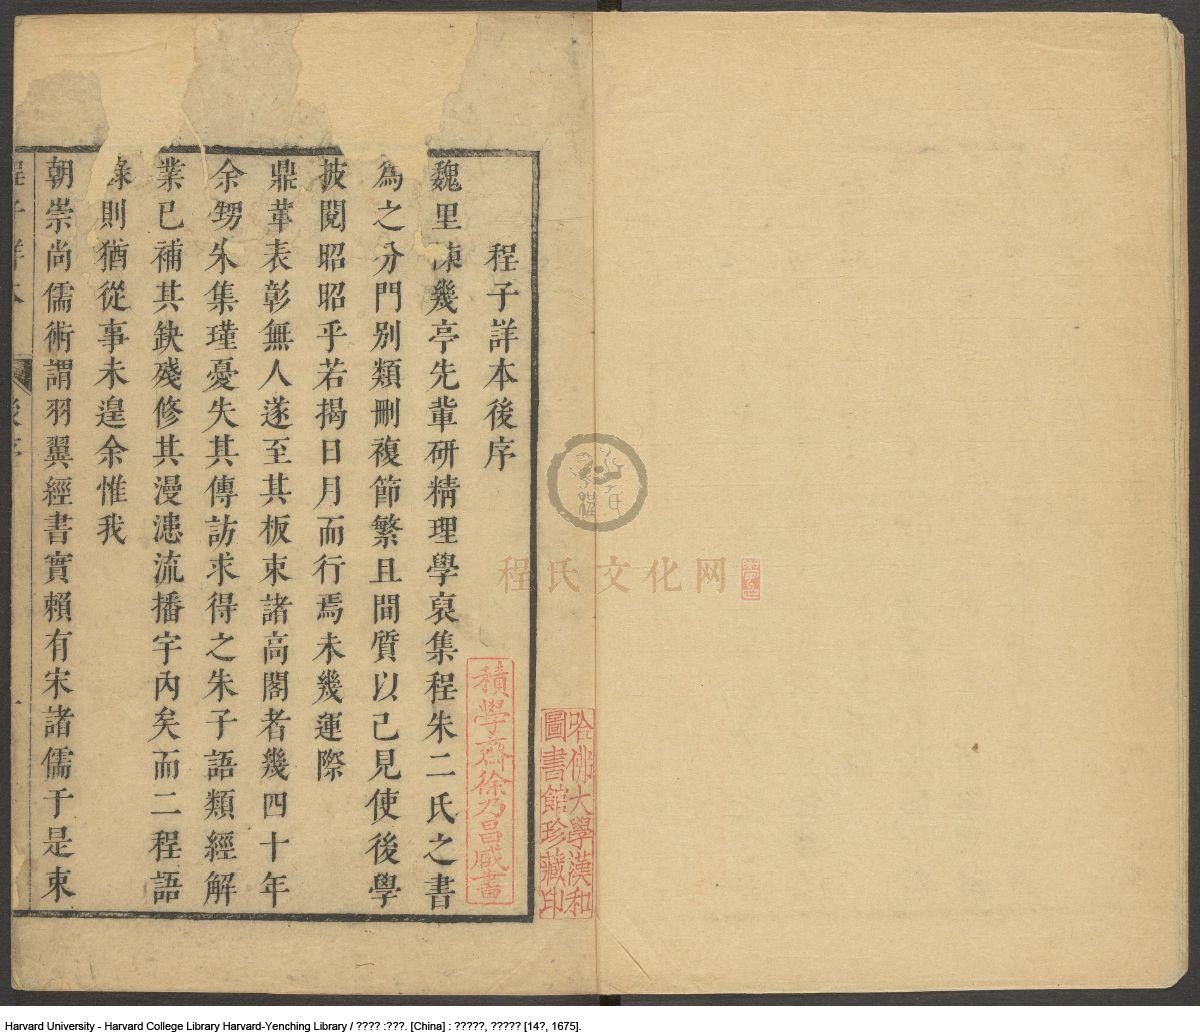 程子詳本後序
魏里陳幾亭先輩研精理學裒集程朱二氏之書
為之分門別類刪複節繁且間質以己見使後學
披閱昭昭乎若揭日月而行焉未幾運際
鼎革表彰無人遂至其板束諸高閣者幾四十年
余甥朱集瑾憂失其傳訪求得之朱子語類經解
業已補其缺殘修其漫漶流播宇內矣而二程語
錄則猶從事未遑余惟我
朝崇尚儒術謂羽翼經書實賴有宋諸儒于是束
程子詳本
後序
一
積學齋徐乃昌藏書
哈佛大學漢和
圖書館珍藏印
程氏文化网
Harvard University - Harvard College Library Harvard-Yenching Library / ???? :???. [China] : ?????, ????? [14?, 1675].